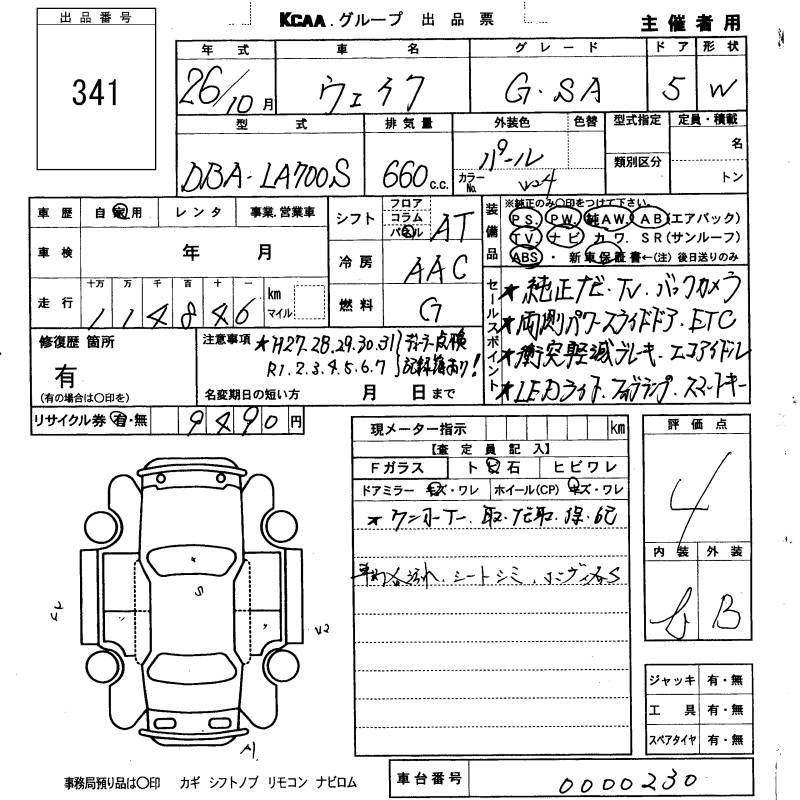 出品番号
341
KCAA.グループ 出品票
主催者用
年式 車名 グレード ドア 形状
26/10月 ウェイク G・SA 5 W
型式 排気量 外装色 色替 型式指定 定員・積載
DBA-LA700S 660c.c. パール 名
カラーNo. W24 類別区分 トン
車歴 自家用 レンタ 事業.営業車
車検 年 月
走行 十万 万 千 百 十 一 km マイル
114846
シフト フロア コラム パネル AT
冷房 AAC
燃料 G
装備品
※純正のみ〇印をつけて下さい。
PS. PW. 純AW. AB(エアバック)
TV. ナビ カワ. SR(サンルーフ)
ABS・新車保証書←(注)後日送りのみ
セールスポイント
★純正ナビ・TV.バックカメラ
★両側パワースライドドア.ETC
★衝突軽減ブレーキ.エコアイドル
★LEDライト.フォグランプ.スマートキー
修復歴 箇所
有
(有の場合は〇印を)
注意事項 ★H27.28.29.30.31
R1.2.3.4.5.6.7
ディーラー点検
記録簿あり!
名変期日の短い方 月 日まで
リサイクル券 有・無 9490円
現メーター指示 km
【査定員記入】
Fガラス ト石 ヒビワレ
ドアミラー キズ・ワレ ホイール(CP) キズ・ワレ
★ワンオーナー.取.ナビ取.保.記
シートシミ.
評価点
4
内装 外装
B
ジャッキ 有・無
工具 有・無
スペアタイヤ 有・無
S
A1
事務局預り品は〇印 カギ シフトノブ リモコン ナビロム
車台番号 0000230